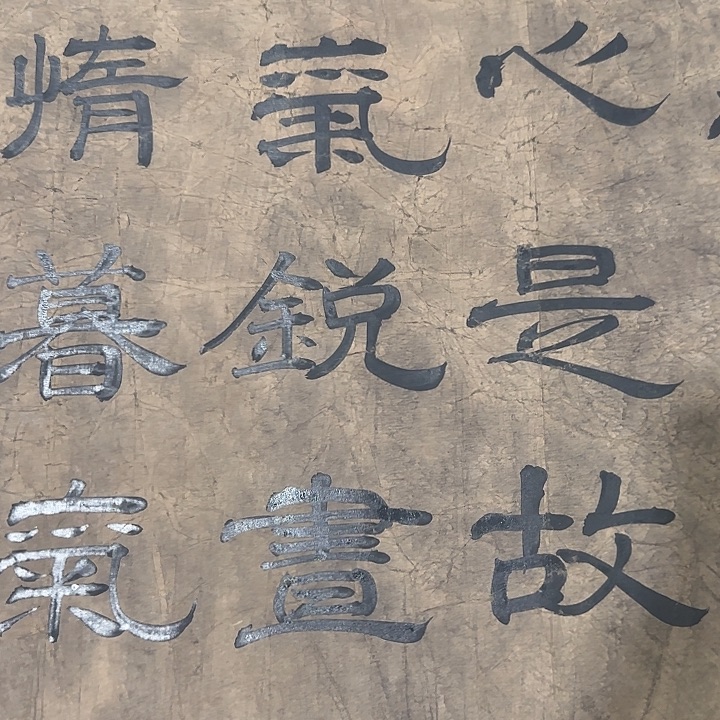 心是故
氣銳晝
惰暮氣